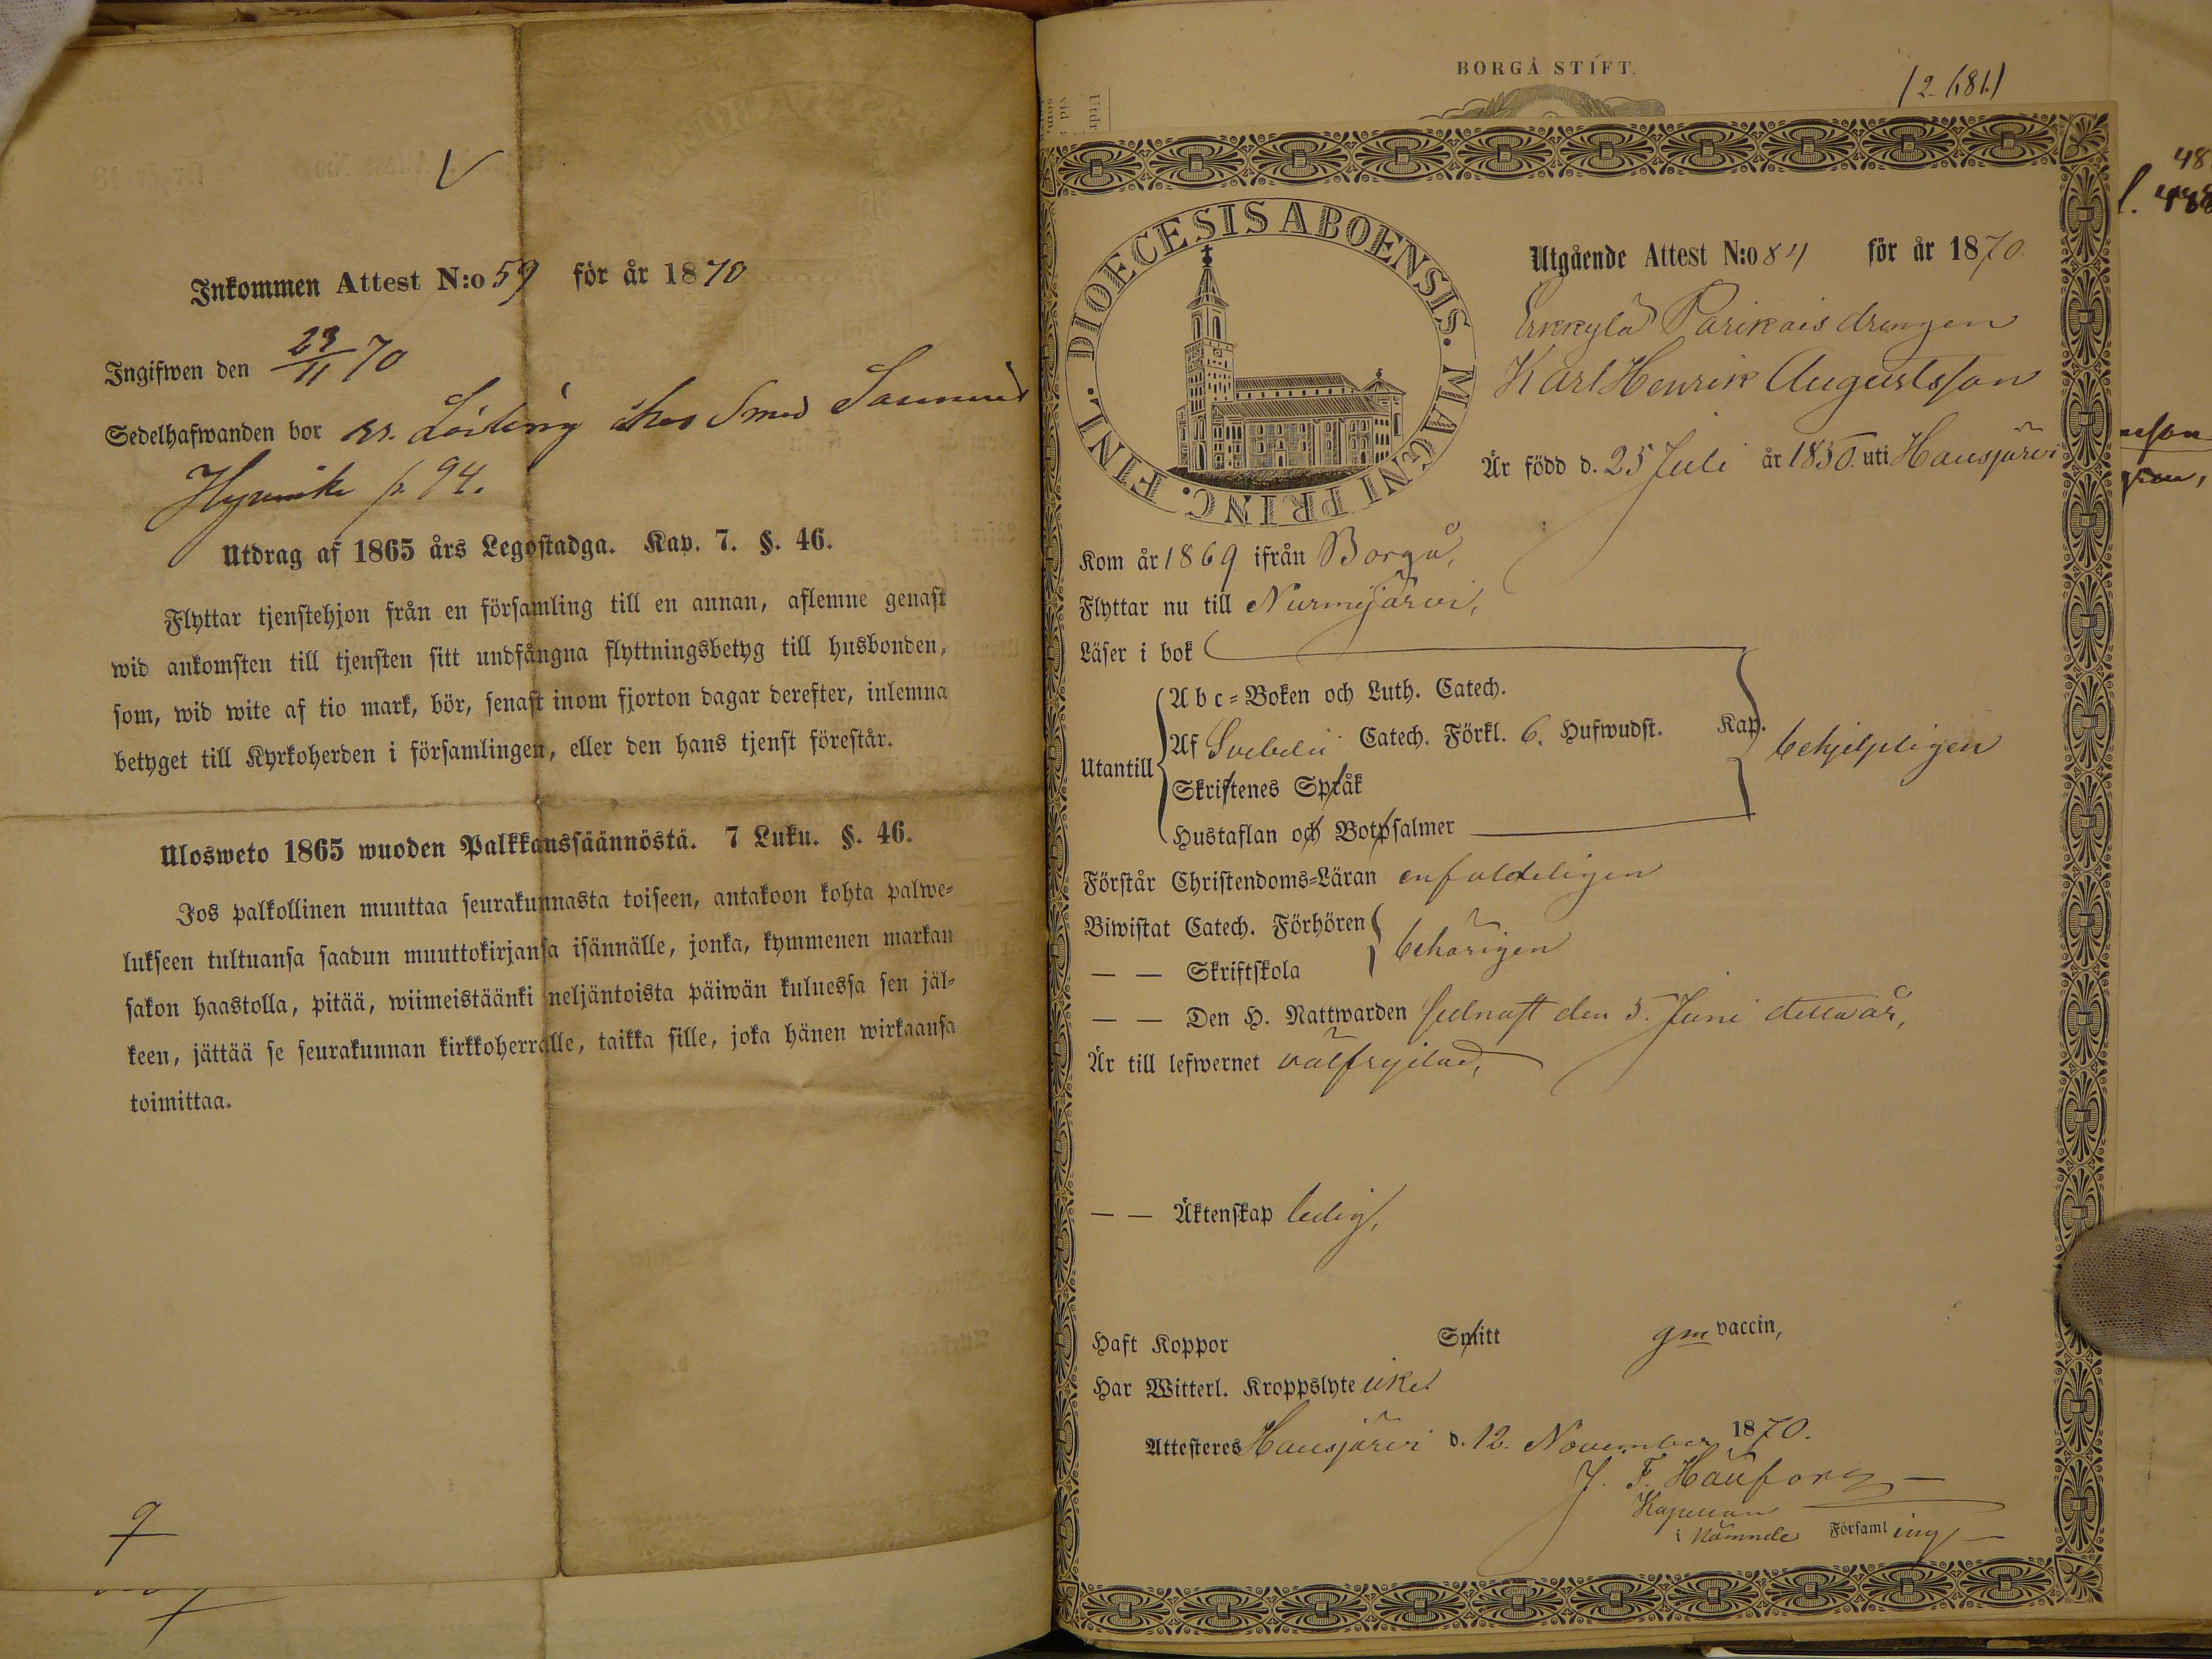 Inkommen Attest N:o 59 för år 1870
Ingifwen den 23/11 70
Sedelhafwanden bor hos Smed
p. 94.
Utdrag af 1865 års Legostadga. Kap. 7. §. 46.
Flyttar tjenstehjon från en församling till en annan, aflemne genast
wid ankomsten till tjensten sitt undfångna flyttningsbetyg till husbonden,
som, wid wite af tio mark, bör, senast inom fjorton dagar derefter, inlemna
betyget till Kyrkoherden i församlingen, eller den hans tjenst förestår.
Ulosweto 1865 wuoden Palkkaussäännöstä. 7 Luku. §. 46.
Jos palkollinen muuttaa seurakunnasta toiseen, antakoon kohta palwe-
lukseen tultuansa saadun muuttokirjansa isännälle, jonka, kymmenen markan
sakon haastolla, pitää, wiimeistäänki neljäntoista päiwän kuluessa sen jäl-
keen, jättää se seurakunnan kirkkoherralle, taikka sille, joka hänen wirkaansa
toimittaa.
BORGÅ STIFT.
DIOECESIS ABOENSIS. MAGNI PRINC. FINL.
Utgående Attest N:o 84 för år 1870.
Erkkylä Parikais drengen
Karl Henrik Augustsson
Är född d. 25 Juli år 1850. uti Hausjärvi
Kom år 1869 ifrån Borgå,
Flyttar nu till Nurmijärvi,
Läser i bok
Utantill
Abc-Boken och Luth. Catech.
Af Svebelii Catech. Förkl. 6. Hufwudst. Kap.
behjelpligen
Skriftenes Språk
Hustaflan och Botpsalmer
Förstår Christendoms-Läran enfaldeligen
Biwistat Catech. Förhören
behörigen
— — Skriftskola
— — Den H. Nattwarden sednast den 5. Juni detta år,
Är till lefwernet välfrejdad,
— — Äktenskap ledig,
Haft Koppor Smitt gm vaccin,
Har Witterl. Kroppslyte icke.
Attesteres Hausjärvi d. 12. November 1870.
J. F.
Kapellan
i nämnde Församling
48
l. 488